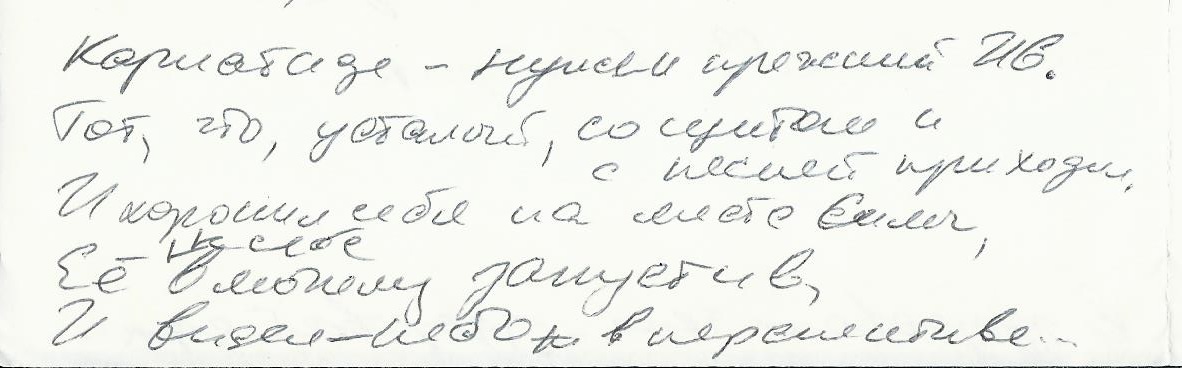 Кариатиде – нужен прежний Ив.
Тот, что, усталый, со щитом и
с песней приходил,
И хоронил себя на месте
на себе
Её в запустив,
И видел – небо в перспективе...